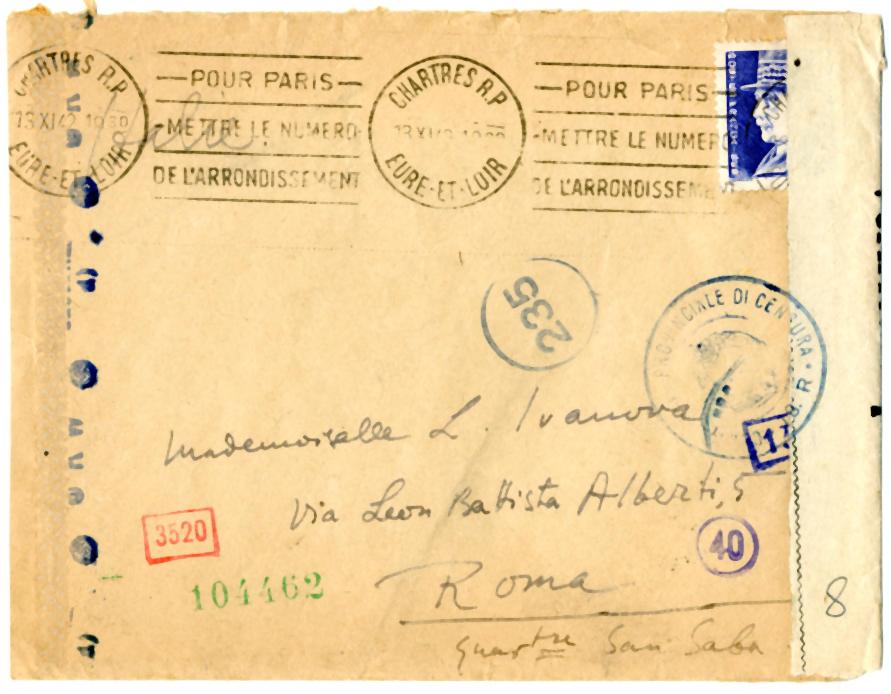 CHARTRES R.P.
13 XI 42 19 30
EURE-ET-LOIR
POUR PARIS
METTRE LE NUMERO
DE L'ARRONDISSEMENT
CHARTRES R.P.
EURE-ET-LOIR
POUR PARIS
METTRE LE NUMERO
DE L'ARRONDISSEME
235
PROVINCIALE DI CENSURA
R
Mademoiselle L. Ivanova
17
Via Leon Battista Alberti, 5
3520
40
104462
Roma
8
San Saba